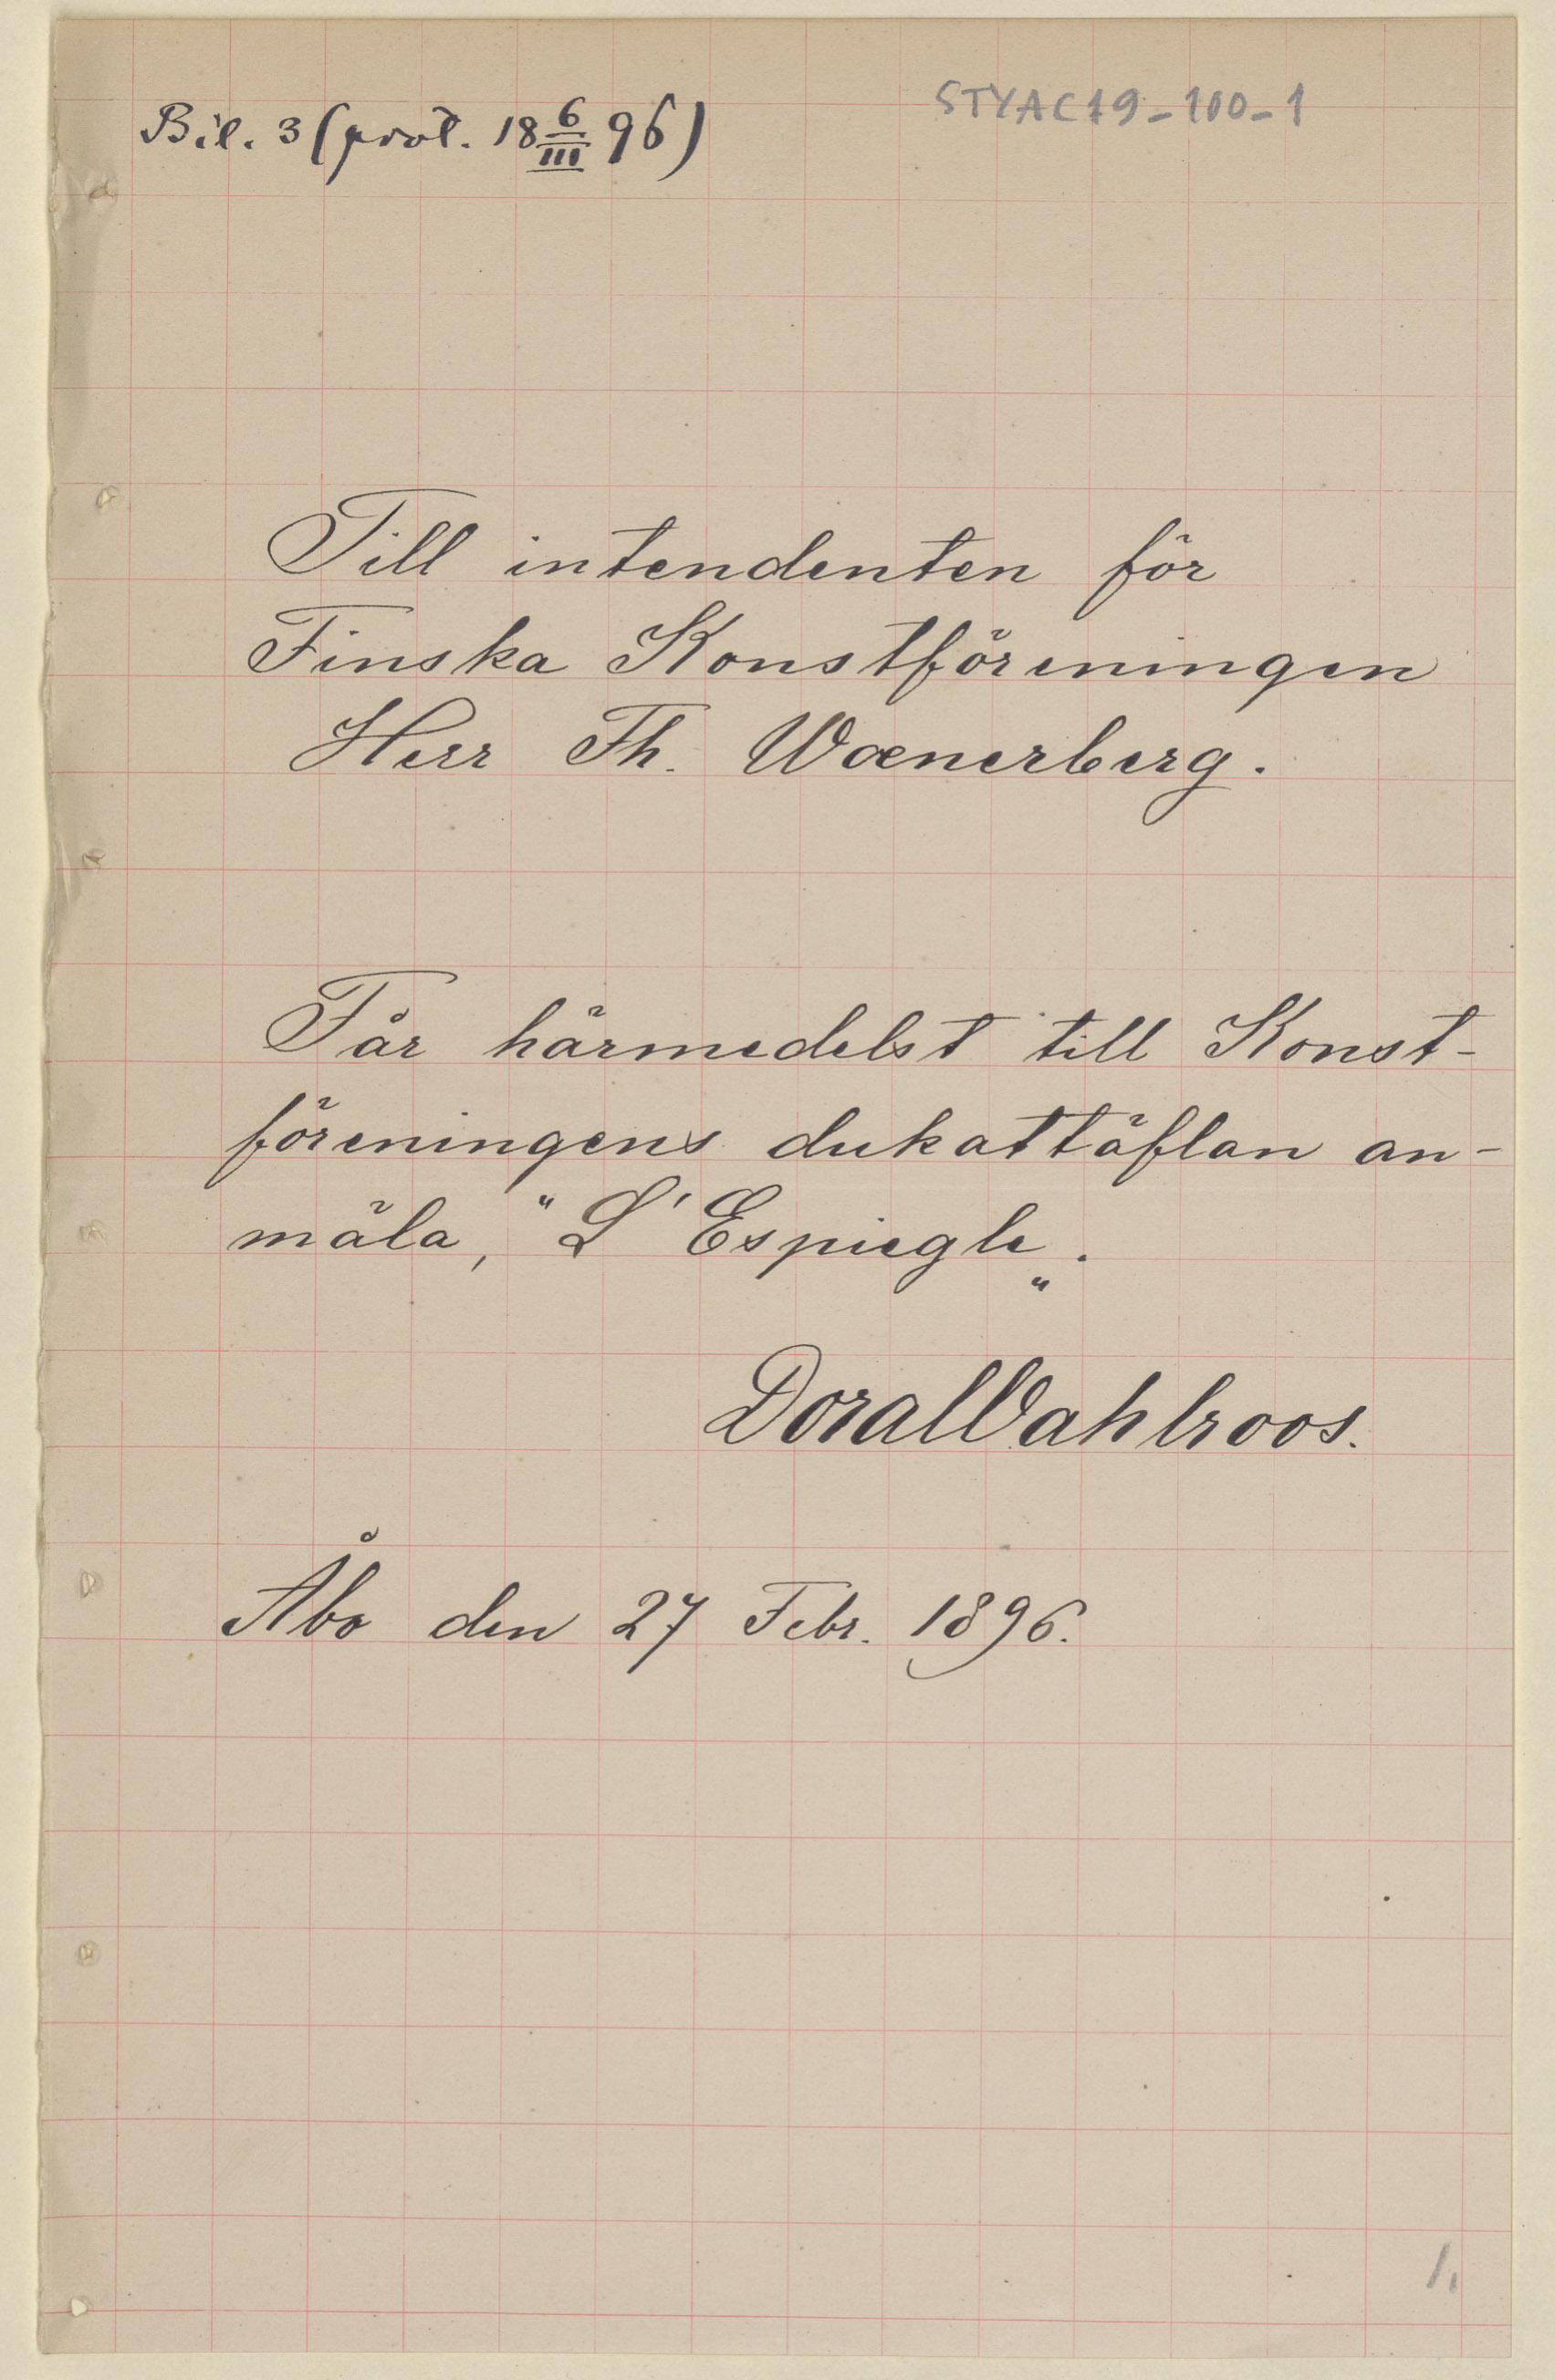 Bil. 3 (prot. 18 6/III 96)
STYAC19-100-1
Till intendenten för
Finska Konstföreningen
Herr Th. Wænerberg.
Får härmedelst till Konst-
föreningens dukattäflan an-
mäla, "L'Espiegle„.
Dora Wahlroos.
Åbo den 27 Febr. 1896.
1.